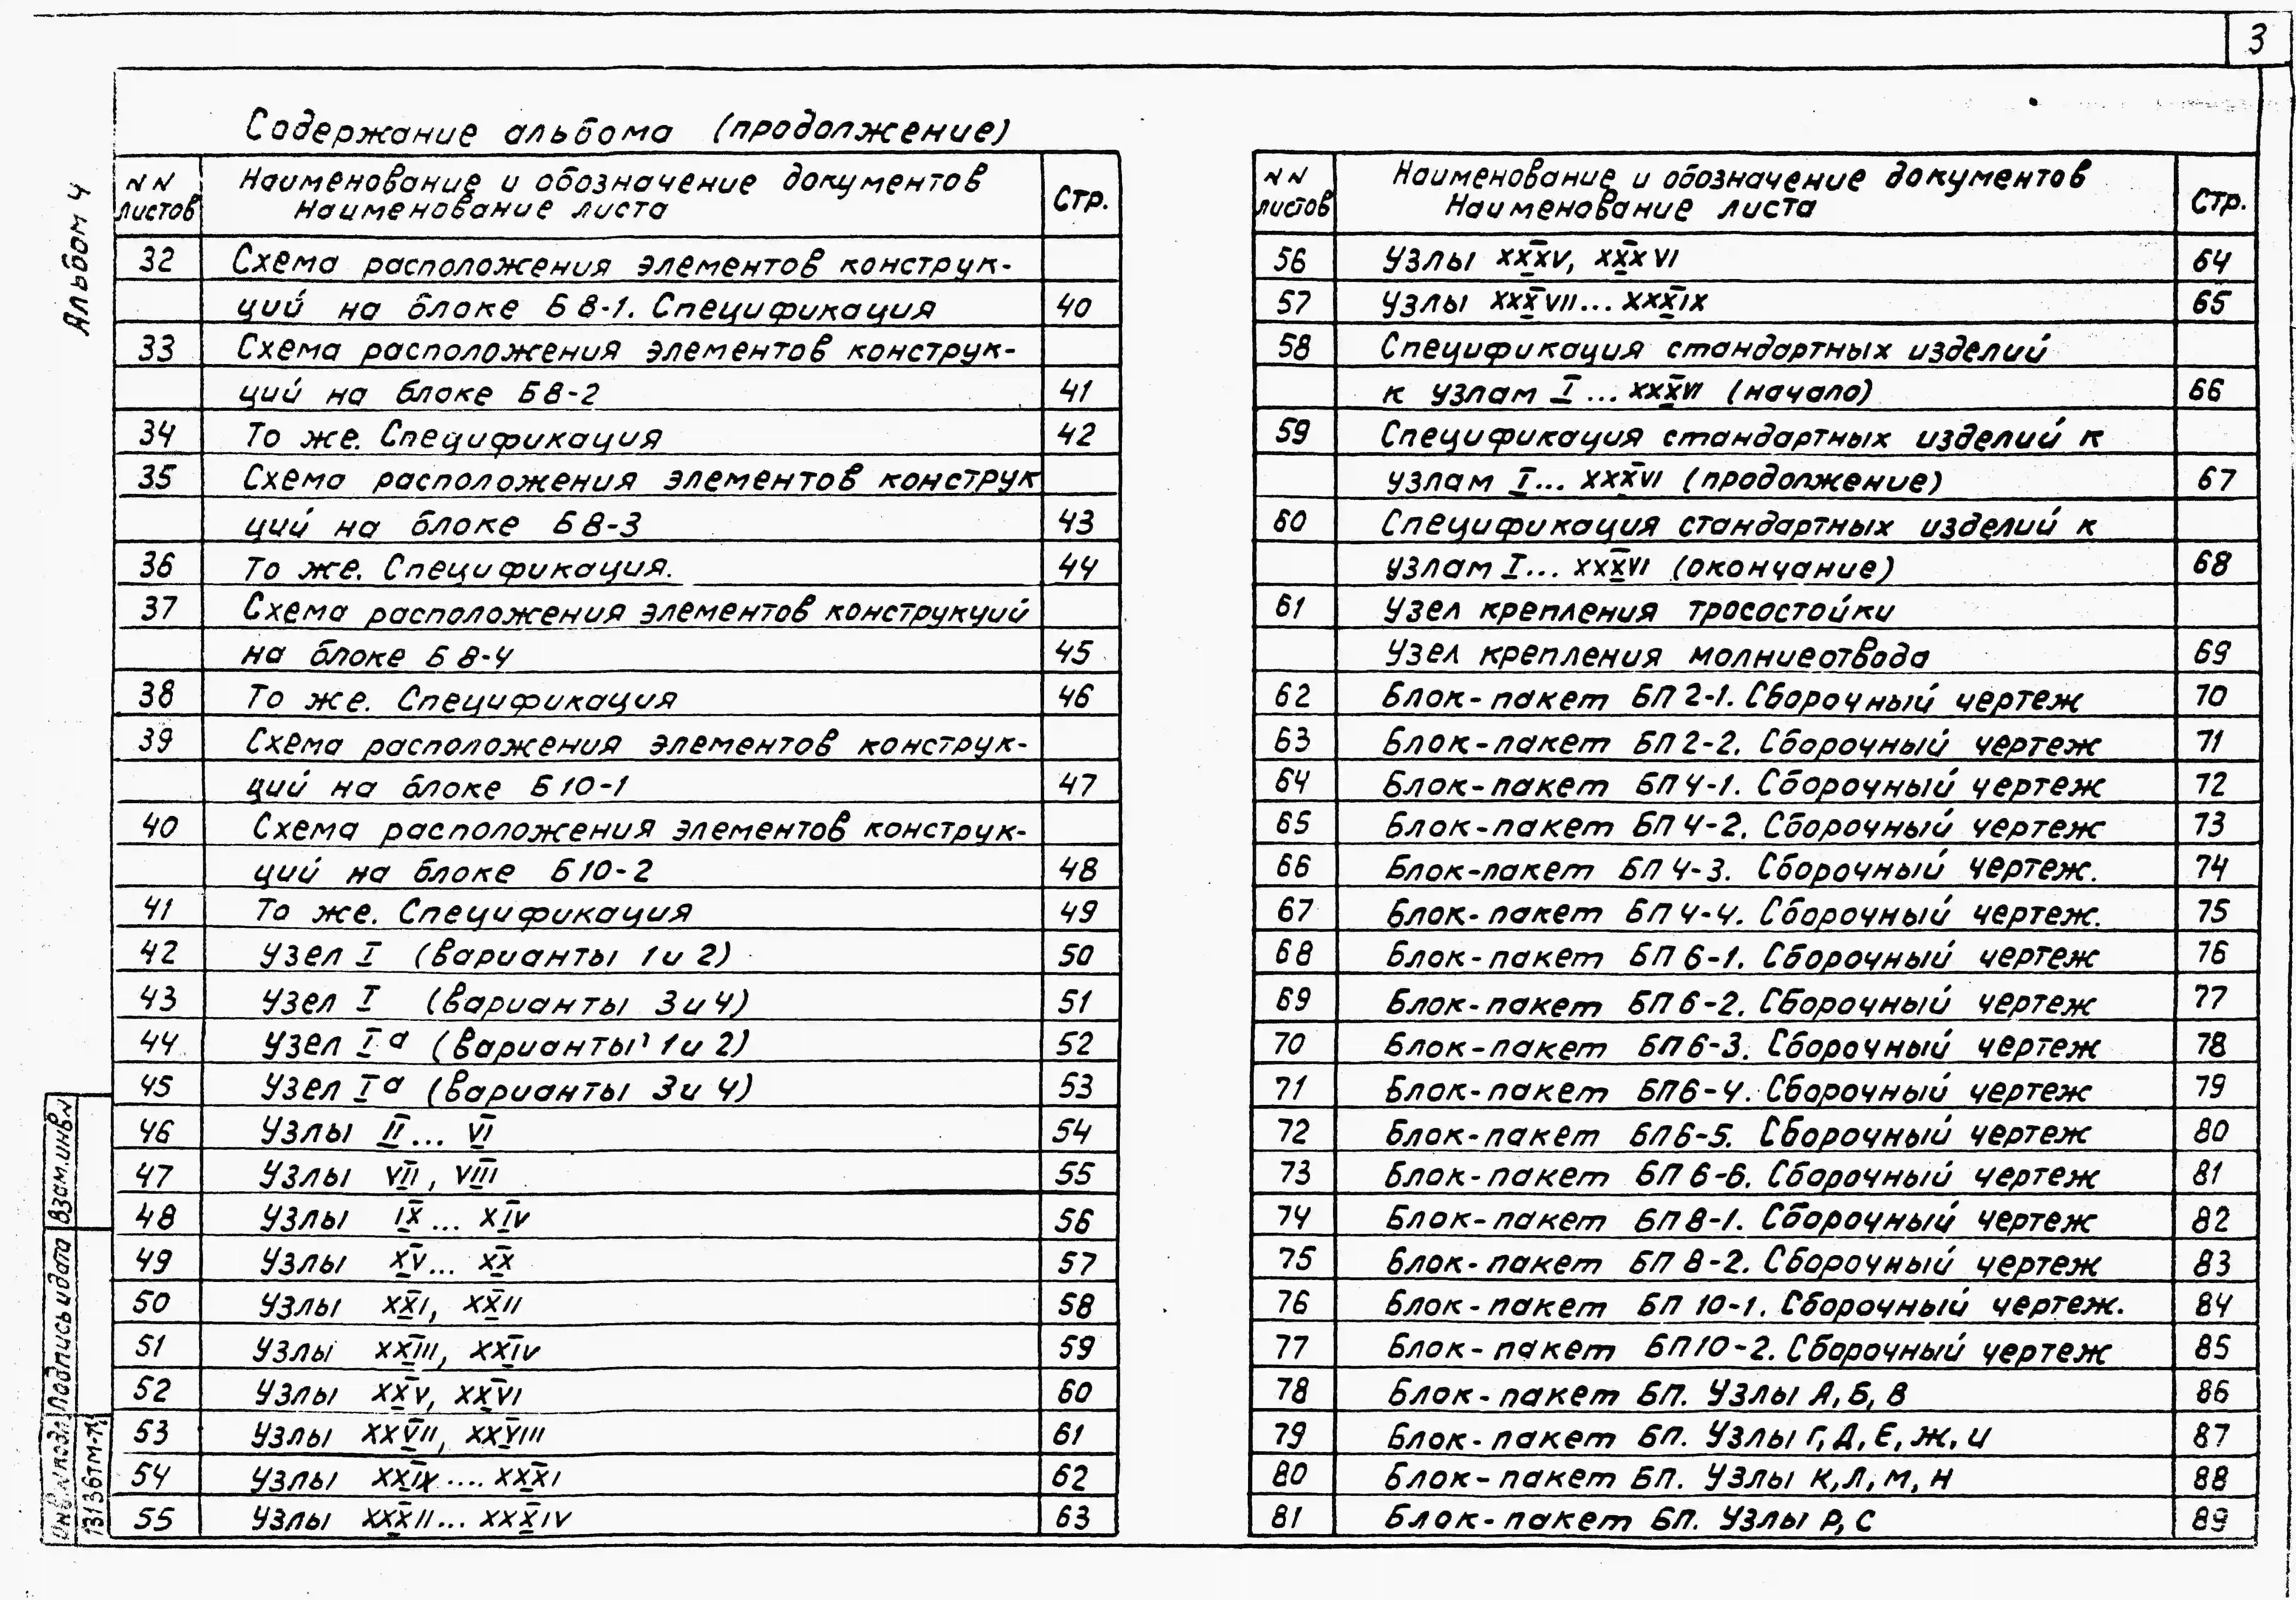 3
Альбом 4
Содержание альбома (продолжение)
NN листов
Наименование и обозначение документов
Наименование листа
Стр.
32 Схема расположения элементов конструк-
ций на блоке Б8-1. Спецификация 40
33 Схема расположения элементов конструк-
ций на блоке Б8-2 41
34 То же. Спецификация 42
35 Схема расположения элементов конструк
ций на блоке Б8-3 43
36 То же. Спецификация. 44
37 Схема расположения элементов конструкций
на блоке Б8-4 45
38 То же. Спецификация 46
39 Схема расположения элементов конструк-
ций на блоке Б10-1 47
40 Схема расположения элементов конструк-
ций на блоке Б10-2 48
41 То же. Спецификация 49
42 Узел I (варианты 1 и 2) 50
43 Узел I (варианты 3 и 4) 51
44 Узел Iа (варианты 1 и 2) 52
45 Узел Iа (варианты 3 и 4) 53
46 Узлы II... VI 54
47 Узлы VII, VIII 55
48 Узлы IX... XIV 56
49 Узлы XV... XX 57
50 Узлы XXI, XXII 58
51 Узлы XXIII, XXIV 59
52 Узлы XXV, XXVI 60
53 Узлы XXVII, XXVIII 61
54 Узлы XXIX.... XXXI 62
55 Узлы XXXII... XXXIV 63
NN листов
Наименование и обозначение документов
Наименование листа
Стр.
56 Узлы XXXV, XXXVI 64
57 Узлы XXXVII... XXXIX 65
58 Спецификация стандартных изделий
к узлам I... XXXVI (начало) 66
59 Спецификация стандартных изделий к
узлам I... XXXVI (продолжение) 67
60 Спецификация стандартных изделий к
узлам I... XXXVI (окончание) 68
61 Узел крепления тросостойки
Узел крепления молниеотвода 69
62 Блок-пакет БП2-1. Сборочный чертеж 70
63 Блок-пакет БП2-2. Сборочный чертеж 71
64 Блок-пакет БП4-1. Сборочный чертеж 72
65 Блок-пакет БП4-2. Сборочный чертеж 73
66 Блок-пакет БП4-3. Сборочный чертеж. 74
67 Блок-пакет БП4-4. Сборочный чертеж. 75
68 Блок-пакет БП6-1. Сборочный чертеж 76
69 Блок-пакет БП6-2. Сборочный чертеж 77
70 Блок-пакет БП6-3. Сборочный чертеж 78
71 Блок-пакет БП6-4. Сборочный чертеж 79
72 Блок-пакет БП6-5. Сборочный чертеж 80
73 Блок-пакет БП6-6. Сборочный чертеж 81
74 Блок-пакет БП8-1. Сборочный чертеж 82
75 Блок-пакет БП8-2. Сборочный чертеж 83
76 Блок-пакет БП10-1. Сборочный чертеж. 84
77 Блок-пакет БП10-2. Сборочный чертеж 85
78 Блок-пакет БП. Узлы А, Б, В 86
79 Блок-пакет БП. Узлы Г, Д, Е, Ж, И 87
80 Блок-пакет БП. Узлы К, Л, М, Н 88
81 Блок-пакет БП. Узлы Р, С 89
Взам.инв.N
Подпись и дата
Инв.N подл.